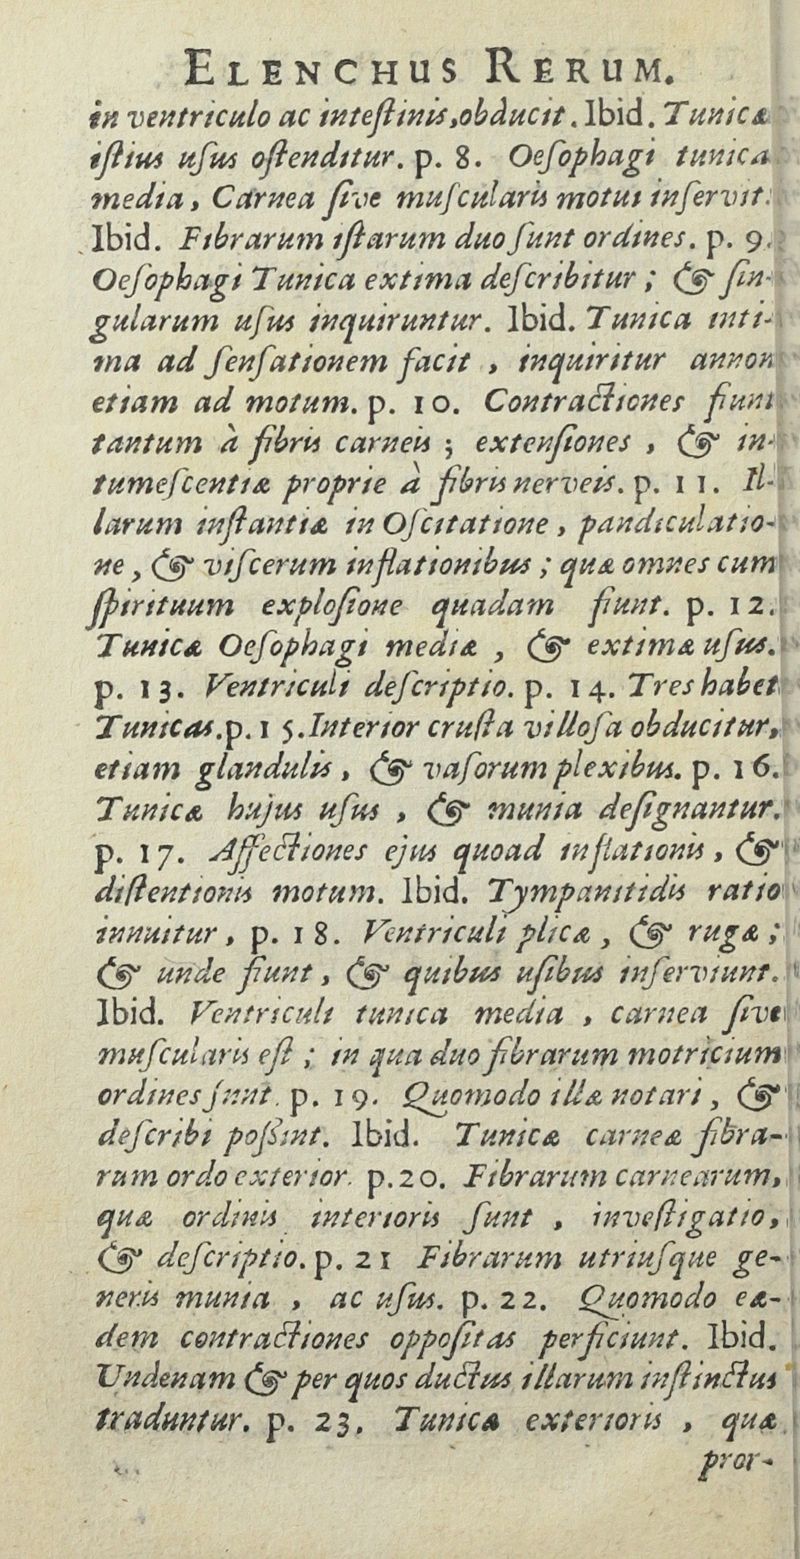 ELENCHUS RERUM.
in ventriculo ac inteſtinis, obducit. Ibid. Tunicæ
iſtius uſus oſtenditur. p. 8. Oeſophagi tunica
media, Carnea ſive muſcularis motui inſervit.
Ibid. Fibrarum iſtarum duo ſunt ordines. p. 9.
Oeſophagi Tunica extima deſcribitur; & ſin-
gularum uſus inquiruntur. Ibid. Tunica inti-
ma ad ſenſationem facit, inquiritur annon
etiam ad motum. p. 10. Contractiones fiunt
tantum à fibris carneis; extenſiones, & in-
tumeſcentiæ proprie à fibris nerveis. p. 11. Il-
larum inſtantiæ in Oſcitatione, pandiculatio-
ne, & viſcerum inflationibus; quæ omnes cum
ſpirituum exploſione quadam fiunt. p. 12.
Tunicæ Oeſophagi mediæ, & extimæ uſus.
p. 13. Ventriculi deſcriptio. p. 14. Tres habet
Tunicas. p. 15. Interior cruſta villoſa obducitur,
etiam glandulis, & vaſorum plexibus. p. 16.
Tunicæ hujus uſus, & munia deſignantur.
p. 17. Affectiones ejus quoad inflationis, &
diſtentionis motum. Ibid. Tympanitidis ratio
innuitur, p. 18. Ventriculi plicæ, & rugæ;
& unde fiunt, & quibus uſibus inſerviunt.
Ibid. Ventriculi tunica media, carnea ſive
muſcularis eſt; in qua duo fibrarum motricium
ordines ſunt. p. 19. Quomodo illæ notari, &
deſcribi poſſint. Ibid. Tunicæ carneæ fibra-
rum ordo exterior. p. 20. Fibrarum carnearum,
quæ ordinis interioris ſunt, inveſtigatio,
& deſcriptio. p. 21 Fibrarum utriuſque ge-
neris munia, ac uſus. p. 22. Quomodo eæ-
dem contractiones oppoſitas perficiunt. Ibid.
Undenam & per quos ductus illarum inſtinctus
traduntur. p. 23. Tunica exterioris, quæ
pror-